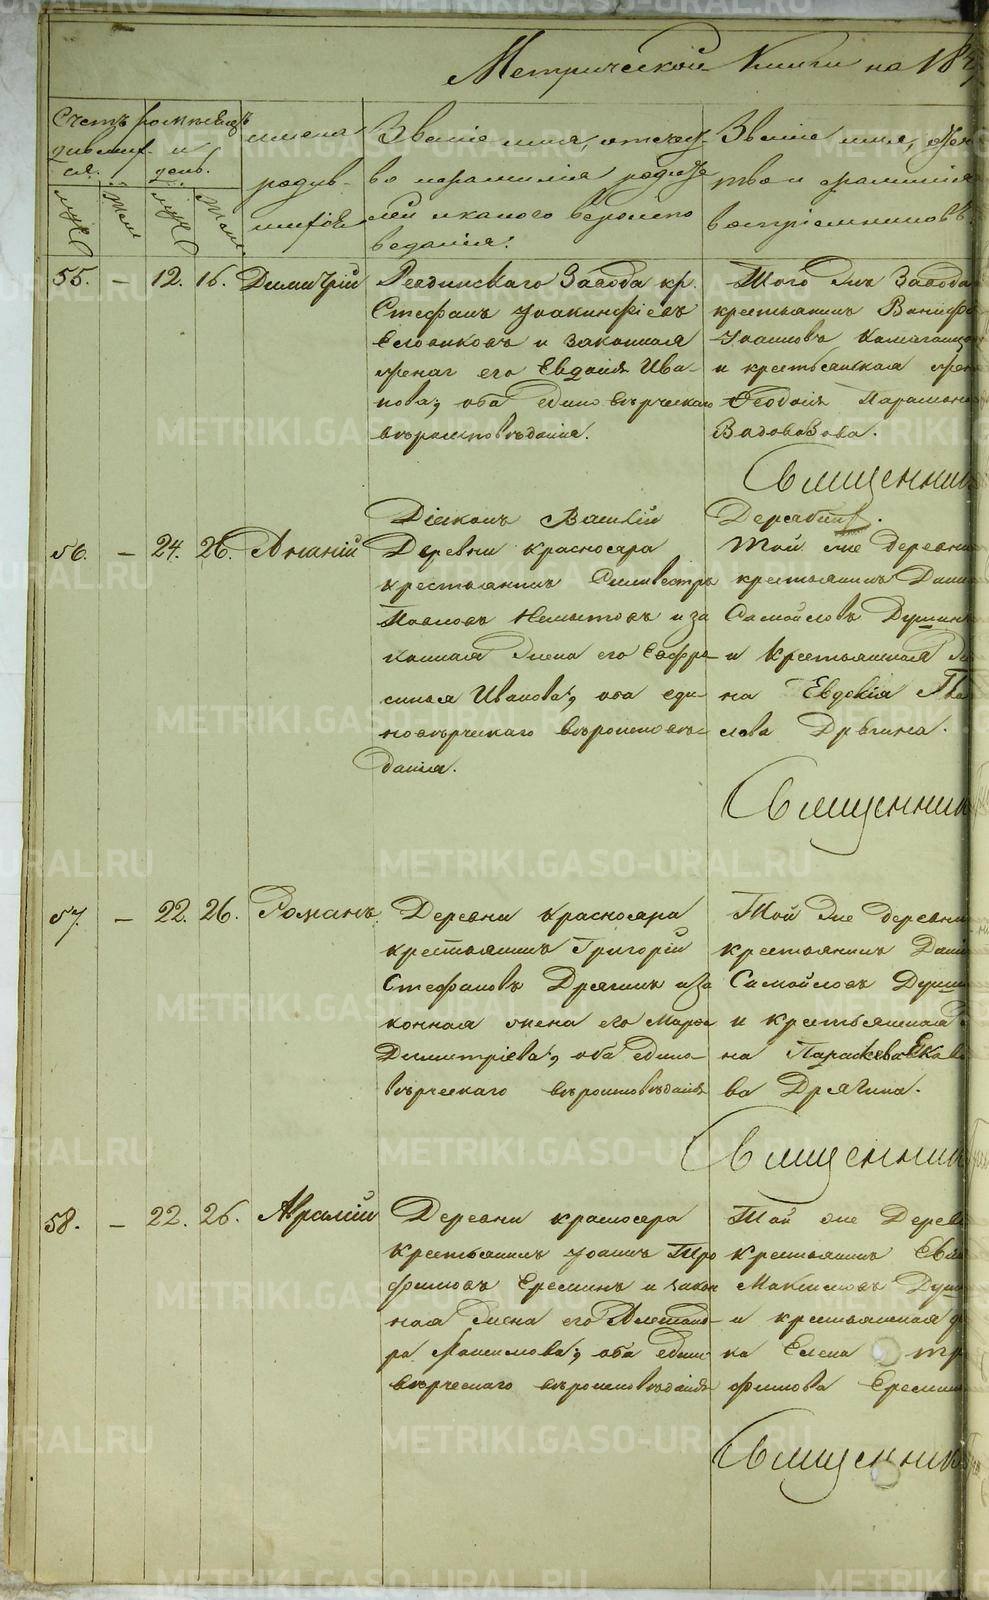 Метрической Книги на 18
Счетъ рождений
имена
родив-
шихся
Званіе имя, отчест-
во и фамилія родите
лей и какого вероиспо
веданія.
Званіе имя, отче
тво и фамилія
воспріемниковъ
муж
жен
муж
жен
55. – 12. 16. Димитрій
Ревдинскаго Завода кр.
Стефанъ Іоакинфіевъ
и законная
жена его Евдокія Ива
нова, оба единоверческаго
вероисповеданія.
Того жъ Завода
крестьянинъ
Іоанновъ
и крестьянская жен
Парамоно
Священник
Діаконъ Василій Дерябинъ.
56. – 24. 26. Ананій
Деревни Краснояра
крестьянинъ Силивестръ
Павловъ и за
конная жена его Евфро
синья Иванова, оба еди-
новѣрческаго вѣроисповѣ-
данія.
Той же деревни
крестьянинъ Дани
Самойловъ
и крестьянская же
на Евдокія Па
лова Дрягина.
Священник
57. – 22. 26. Романъ
Деревни Краснояра
крестьянинъ Григорій
Стефановъ Дрягинъ и за
конная жена его Марѳа
Димитріева, оба едино-
вѣрческаго вѣроисповѣданія
Той же деревни
крестьянинъ Дани
Самойловъ
и крестьянская
на Параскева
ва Дрягина.
Священник
58. – 22. 26. Авраамій
Деревни Краснояра
крестьянинъ Іоаннъ Тро
фимовъ Ереминъ и закон
ная жена его Александ-
ра Максимова, оба едино
вѣрческаго вѣроисповѣданія
Той же Дерев
крестьянинъ
Максимовъ
и крестьянская
ка Елена Тр
фимова Еремин
Священник
METRIKI.GASO-URAL.RU